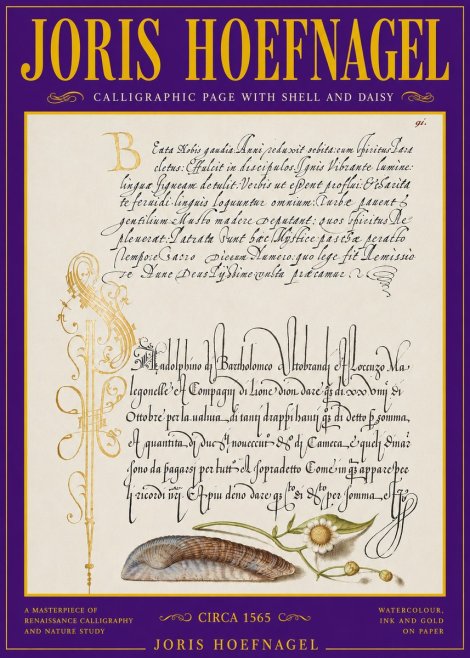 JORIS HOEFNAGEL
CALLIGRAPHIC PAGE WITH SHELL AND DAISY
91.
Beata Nobis gaudia: Anni reduxit orbita: cum spiritus Para
cletus: Effulsit in discipulos. Ignis Vibrante lumine:
linguæ figuram detulit. Verbis ut essent proflui: & Charita
te feruidi. linguis loquuntur omnium: Turbæ pauent
gentilium: Musto madere deputant: quos spiritus Re
pleuerat. Patrata sunt hæc Mystice: paschæ peracto
tempore: sacro dierum Numero: quo lege fit Remissio
te Nunc Deus pijssime vultu precamur
Pandolphino di Bartholomeo e Lorenzo Ma
legonelle e Compagni di Lione dion dare di xxv
Ottobre per la ualuta di tanti drappi hauti di detto somma
quantita di duc nouecento di Camera, e queli dinar
sono da pagarsi per tutto il sopradetto Come in appare per
li ricordi E piu deno dare di per somma
A MASTERPIECE OF
RENAISSANCE CALLIGRAPHY
AND NATURE STUDY
CIRCA 1565
WATERCOLOUR,
INK AND GOLD
ON PAPER
JORIS HOEFNAGEL